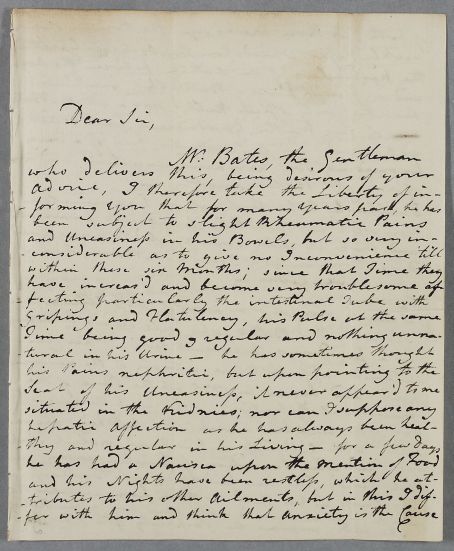 Dear Sir,
Mr. Bates, the Gentleman
who delivers this, being desirous of your
advice, I therefore take the Liberty of in-
-forming you that for many years past, he has
been subject to slight Rheumatic Pains
and Uneasiness in his Bowels, but so very in-
-considerable as to give no Inconvenience till
within these six Months; since that Time they
have increas'd and become very troublesome af-
-fecting particularly the intestinal Tube with
Gripings and Flatulency, his Pulse at the same
Time being good & regular and nothing unna-
-tural in his Urine — he has sometimes thought
his Pains nephritic, but upon pointing to the
Seat of his Uneasiness, it never appear'd to me
situated in the Kidnies; nor can I suppose any
hepatic affection as he has always been heal-
-thy and regular in his Living — for a few days
he has had a Nausea upon the mention of Food
and his Nights have been restless, which he at-
-tributes to his other Ailments, but in this I dif-
-fer with him and think that Anxiety is the Cause